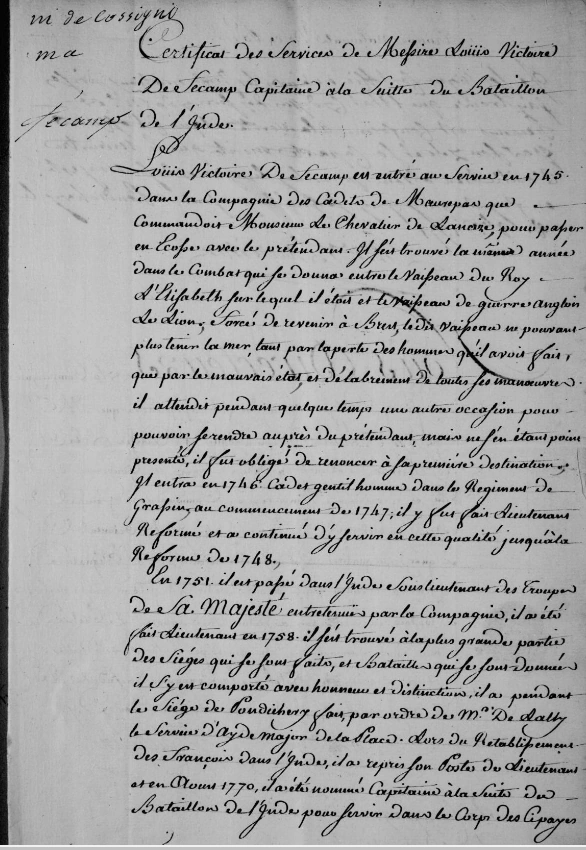 m de Cossigni
ma
fécamp
Certificat des Services de Messire Loüis Victoire
De Fecamp Capitaine à la Suitte du Bataillon
de l'Inde.
Loüis Victoire De Fecamp est entré au Service en 1745.
dans la Compagnie des Cadets de Maurepas que
Commandoit Monsieur Le Chevalier de Lanoize, pour passer
en Ecosse avec le prétendant. Il s'est trouvé la même année
dans le Combat qui se donna entre le Vaisseau du Roy
L'Elisabeth sur lequel il étoit et le vaisseau de guerre Anglois
Le Lion, Forcé de revenir à Brest, le dit vaisseau ne pouvant
plus tenir la mer, tant par la perte des hommes qu'il avoit fait,
que par le mauvais état, et délabrement de toutes ses manœuvres.
il attendit pendant quelque temps une autre occasion pour
pouvoir se rendre auprès du prétendant, mais ne s'en étant point
presenté, il fut obligé de renoncer à sa première destination.
Il entra en 1746. Cadet gentilhomme dans le Regiment de
Grassin, au commencement de 1747, il y fut fait Lieutenant
Reformé et a continué d'y servir en cette qualité jusqu'à la
Reforme de 1748.
En 1751. il est passé dans l'Inde Souslieutenant des Troupes
de Sa Majesté entretenües par la Compagnie, il a été
fait Lieutenant en 1758. il s'est trouvé à la plus grande partie
des Siéges qui se sont faits, et Batailles qui se sont données
il s'y est comporté avec honneur et distinction, il a pendant
le Siége de Pondichery fait, par ordre de M. De Lally
le Service d'Ayde major de la Place. Lors du Retablissement
des François dans l'Inde, il a repris son Poste de Lieutenant
et en Aoust 1770, il a été nommé Capitaine à la Suite du
Bataillon de l'Inde pour servir dans le Corps des Cipayes